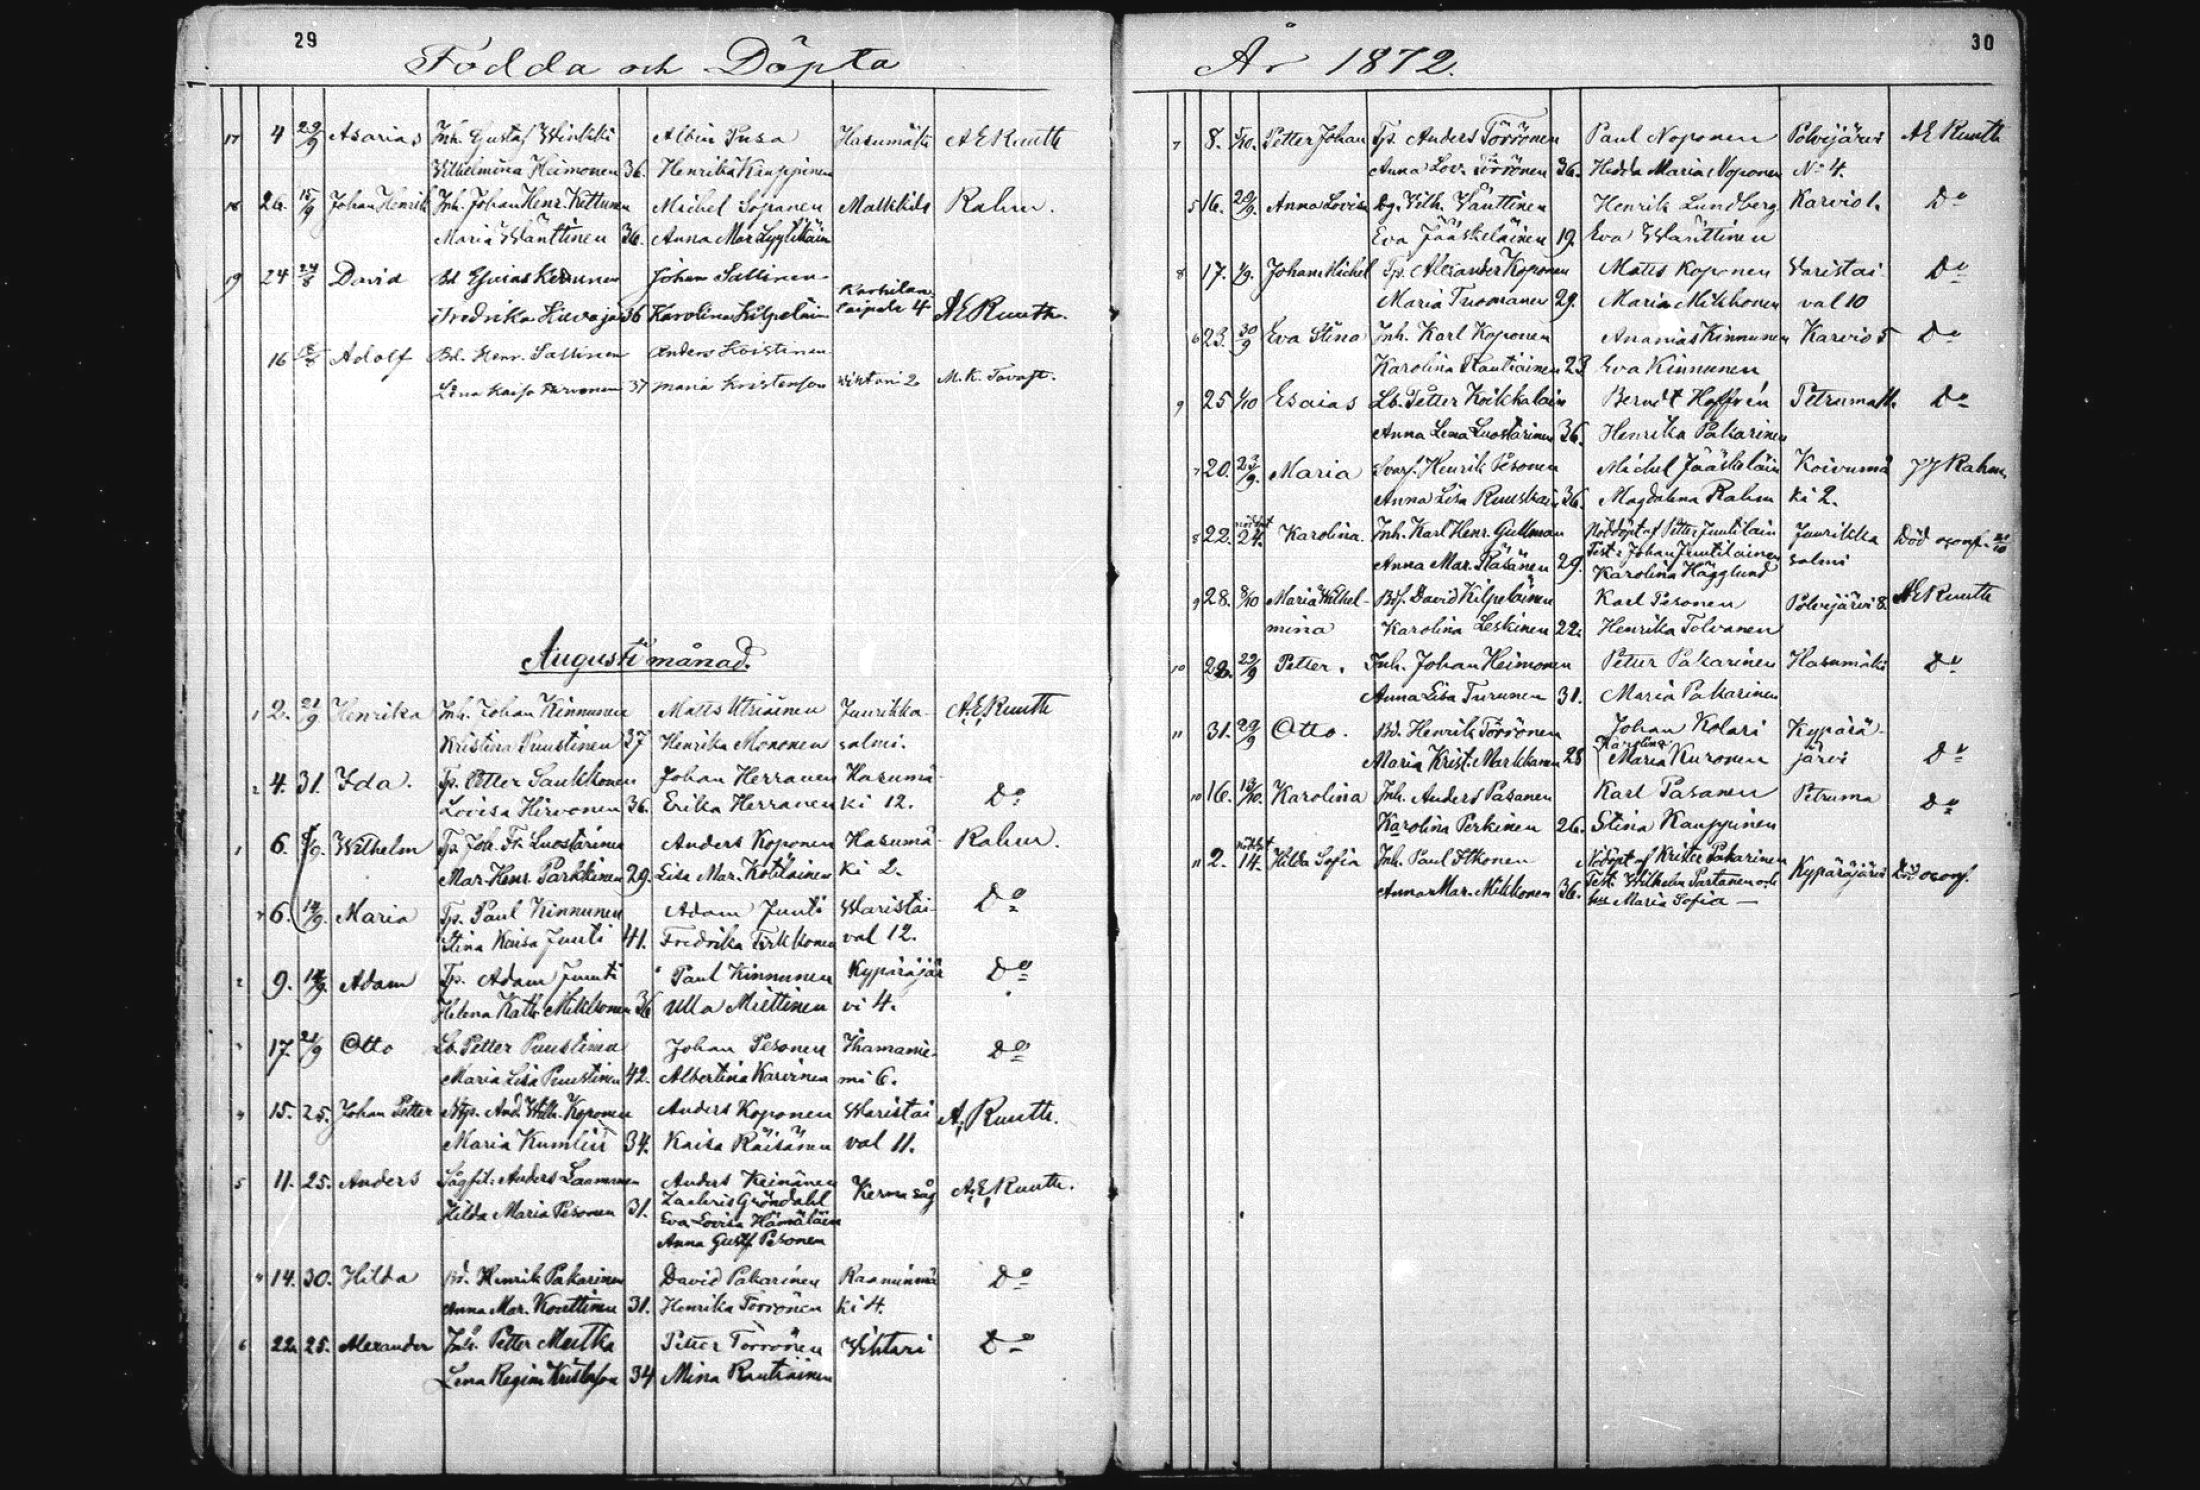 29
Födda och Döpta
17 4 29/9 Asarias Inh. Gustaf Albin Pusa Hasumäki A E Ruuth
Wilhelmina Heimonen 36. Henrika Kauppinen
18 26. 15/9 Johan Henrik Inh. Johan Henr. Kettunen Michel Sopanen Malkkila Rahm.
Maria Wänttinen 36. Anna Mar. Lyytikäin
19 24 24/8 David Bd. Esaias Johan Sallinen
Fredrika 36 Karolina Kilpeläin laipale 4 A E Ruuth.
16 Adolf Bd. Henr. Sallinen Anders Loistinen
Lena Kaisa 37 Maria Kristersson Wihtari 2 M. K. Tavast.
Augusti månad.
1 2. 21/9 Henrika Inh. Johan Kinnunen Matts Utriainen Juurikka- A, E, Ruuth
Kristina Puustinen 37 Henrika Mononen salmi.
2 4. 31. Ida. Tp. Petter Saukkonen Johan Herranen Hasumä-
Lovisa Hirvonen 36. Erika Herranen ki 12. Do
1 6. 8/9. Wilhelm Tp. Joh. Fr. Luostarinen Anders Koponen Hasumä- Rahm.
Mar. Henr. Parkkinen 29. Lisa Mar. Kotilainen ki 2.
2 6. 14/9. Maria Tp. Paul Kinnunen Adam Juuti Waristai- Do
Stina Kaisa Juuti 41. Fredrika Tirkkonen val 12.
2 9. 14/9. Adam Tp. Adam Juuti Paul Kinnunen Kypäräjär Do
Helena Kath. Mikkonen 36 Ulla Miettinen vi 4.
3 17. 21/9 Otto Lb. Petter Puustinen Johan Pesonen Ihamanie- Do
Maria Lisa Puustinen 42. Albertina Karvinen mi 6.
4 15. 25. Johan Petter And. Wilh. Koponen Anders Koponen Waristai A, Ruuth.
Maria Kumlin 34. Kaisa Räisänen val 11.
5 11. 25. Anders Anders Laamanen Anders Keinänen
Zachris Gröndahl Kerma såg A, E, Ruuth.
Hilda Maria Pesonen 31. Eva Lovisa Hämäläin
Anna Gust. Pesonen
4 14. 30. Hilda Bd. Henrik Pakarinen David Pakarinen Raaminmä Do
Anna Mar. Konttinen 31. Henrika Törrönen ki 4.
6 22. 25. Alexander Inh. Petter Mutka Petter Törrönen Wihtari Do
Lena Regina Kristersson 34 Mina Rautiainen
30
År 1872.
7 8. 5/10. Petter Johan Tp. Anders Törrönen Paul Noponen Polvijärvi A E Ruuth
Anna Lov. Törrönen 36. Hedda Maria Noponen No 4.
5 16. 22/9. Anna Lovisa Dg. Wilh. Wänttinen Henrik Lundberg Karvio 1. Do
Eva Jääskeläinen 19. Eva Wänttinen
8 17. 1/9. Johan Michel Tp. Alexander Koponen Matts Koponen Waristai Do
Maria Tuomanen 29. Maria Mikkonen val 10
6 23. 30/9 Eva Stina Inh. Karl Koponen Ananias Kinnunen Karvio 5 Do
Karolina Rautiainen 23 Eva Kinnunen
9 25 1/10 Esaias Lb. Petter Koikkalain Berndt Hoffrén Petrumäk. Do
Anna Lena Luostarinen 36. Henrika Pakarinen
7 20. 23/9. Maria Svärf. Henrik Pesonen Michel Jääskeläin Koivumä J J Rahm.
Anna Lisa Ruuskain 36. Magdalena Rahm ki 2.
8 22. nöddöpt 24. Karolina. Inh. Karl Henr. Gullman Nöddöpt af Petter Juutilain Juurikka Död oconf. 21/10
Test: Johan Juutilainen
Anna Mar. Räsänen 29. Karolina Hägglund salmi
9 28. 8/10 Maria Wilhel- Bdf. David Kilpeläinen Karl Pesonen Polvijärvi 8. A E Ruuth
mina Karolina Leskinen 22. Henrika Tolvanen
10 22. 29/9 Petter. Inh. Johan Heimonen Petter Pakarinen Hasumäki Do
Anna Lisa Turunen 31. Maria Pakarinen
11 31. 29/9 Otto. Bd. Henrik Törrönen Johan Kolari Kypärä-
Karolina
Maria Krist. Markkanen 28 Maria Kuronen järvi Do
10 16. 13/10. Karolina Inh. Anders Pasanen Karl Pasanen Petruma Do
Karolina Perkinen 26. Stina Kauppinen
11 2. nöddöpt 14. Hilda Sofia Inh. Paul Itkonen Nöddöpt af Krister Pakarinen Kypäräjärvi Död oconf.
Anna Mar. Mikkonen 36. Test. Wilhelm Partanen och
hu Maria Sofia —